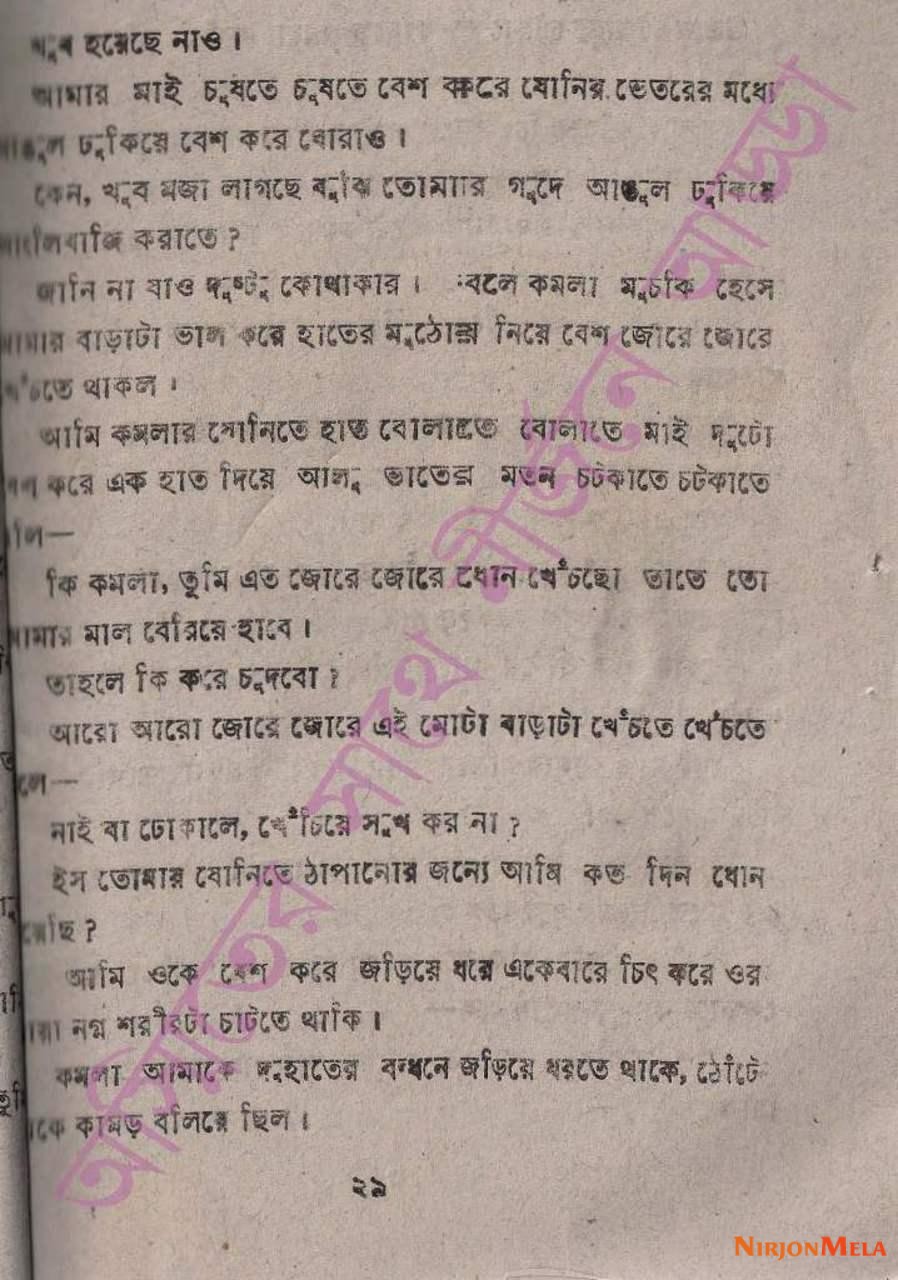 হয়েছে নাও।
আমার মাই চুষতে চুষতে বেশ করে যোনির ভেতরের মধ্যে
ঢুকিয়ে বেশ করে ঘোরাও।
কেন, খুব মজা লাগছে বুঝি তোমার গুদে আঙ্গুল ঢুকিয়ে
করাতে?
জানি না যাও দুষ্টু কোথাকার। বলে কমলা মুচকি হেসে
আমার বাড়াটা ভাল করে হাতের মুঠোয় নিয়ে বেশ জোরে জোরে
থাকল।
আমি কমলার যোনিতে হাত বোলাতে বোলাতে মাই দুটো
করে এক হাত দিয়ে আলু ভাতের মতন চটকাতে চটকাতে
কি কমলা, তুমি এত জোরে জোরে ধোন খেঁচছো তাতে তো
আমার মাল বেরিয়ে যাবে।
তাহলে কি করে চুদবো?
আরো আরো জোরে জোরে এই মোটা বাড়াটা খেঁচতে খেঁচতে
নাই বা ঢোকালে, খেঁচিয়ে সুখ কর না?
ইস তোমার যোনিতে ঠাপানোর জন্যে আমি কত দিন ধোন
আমি ওকে বেশ করে জড়িয়ে ধরে একেবারে চিৎ করে ওর
নগ্ন শরীরটা চাটতে থাকি।
কমলা আমাকে দুহাতের বন্ধনে জড়িয়ে ধরতে থাকে, ঠোঁটে
কামড় বসিয়ে ছিল।
২৯
অসিতের সাথে নীর্জনে আড্ডা
NIRJONMELA